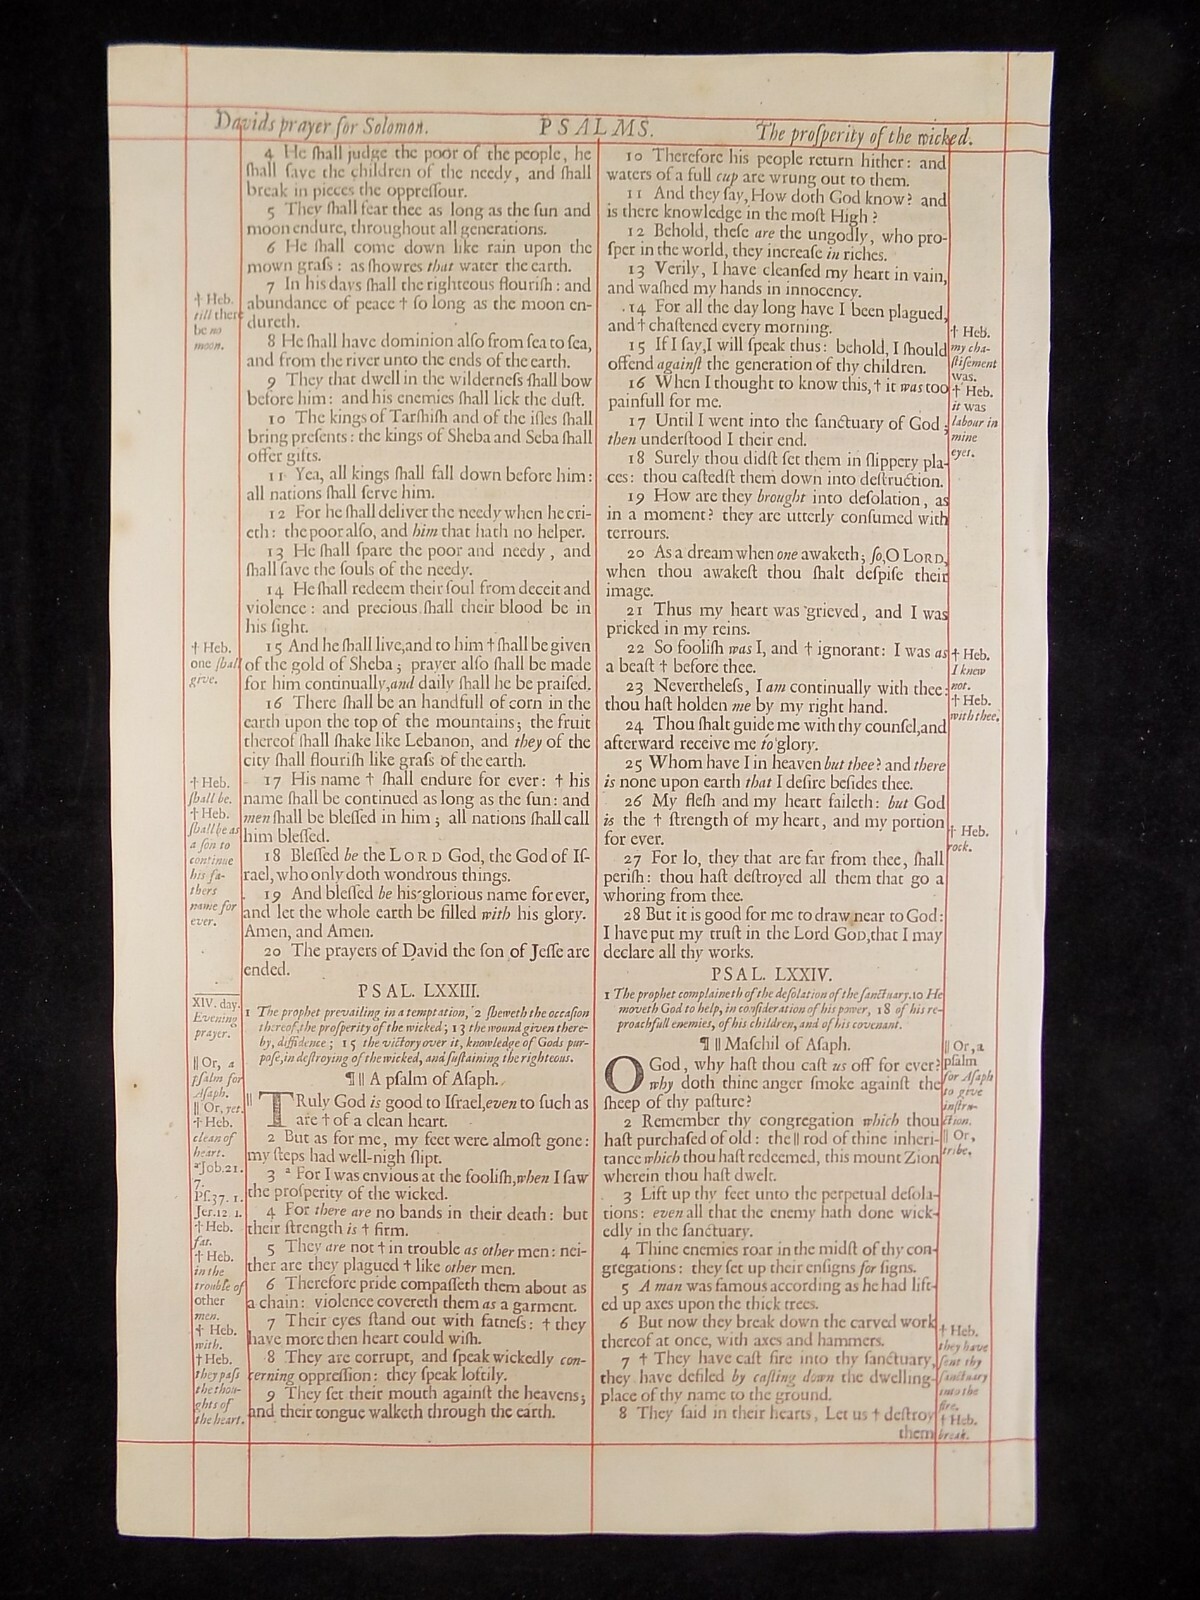 Davids prayer for Solomon.
PSALMS.
The proſperity of the wicked.
4 He ſhall judge the poor of the people, he
ſhall ſave the children of the needy, and ſhall
break in pieces the oppreſſour.
5 They ſhall fear thee as long as the ſun and
moon endure, throughout all generations.
6 He ſhall come down like rain upon the
mown graſs: as ſhowres that water the earth.
7 In his days ſhall the righteous flouriſh: and
abundance of peace † ſo long as the moon en-
dureth.
8 He ſhall have dominion alſo from ſea to ſea,
and from the river unto the ends of the earth.
9 They that dwell in the wilderneſs ſhall bow
before him: and his enemies ſhall lick the duſt.
10 The kings of Tarſhiſh and of the iſles ſhall
bring preſents: the kings of Sheba and Seba ſhall
offer gifts.
11 Yea, all kings ſhall fall down before him:
all nations ſhall ſerve him.
12 For he ſhall deliver the needy when he cri-
eth: the poor alſo, and him that hath no helper.
13 He ſhall ſpare the poor and needy, and
ſhall ſave the ſouls of the needy.
14 He ſhall redeem their ſoul from deceit and
violence: and precious ſhall their blood be in
his ſight.
15 And he ſhall live, and to him † ſhall be given
of the gold of Sheba; prayer alſo ſhall be made
for him continually, and daily ſhall he be praiſed.
16 There ſhall be an handfull of corn in the
earth upon the top of the mountains; the fruit
thereof ſhall ſhake like Lebanon, and they of the
city ſhall flouriſh like graſs of the earth.
17 His name † ſhall endure for ever: † his
name ſhall be continued as long as the ſun: and
men ſhall be bleſſed in him; all nations ſhall call
him bleſſed.
18 Bleſſed be the LORD God, the God of Iſ-
rael, who only doth wondrous things.
19 And bleſſed be his glorious name for ever,
and let the whole earth be filled with his glory.
Amen, and Amen.
20 The prayers of David the ſon of Jeſſe are
ended.
PSAL. LXXIII.
1 The prophet prevailing in a temptation, 2 ſheweth the occaſion
thereof, the proſperity of the wicked; 13 the wound given there-
by, diffidence; 15 the victory over it, knowledge of Gods pur-
poſe, in deſtroying of the wicked, and ſuſtaining the righteous.
¶ || A pſalm of Aſaph.
|| TRuly God is good to Iſrael, even to ſuch as
are † of a clean heart.
2 But as for me, my feet were almoſt gone:
my ſteps had well-nigh ſlipt.
3 ᵃ For I was envious at the fooliſh, when I ſaw
the proſperity of the wicked.
4 For there are no bands in their death: but
their ſtrength is † firm.
5 They are not † in trouble as other men: nei-
ther are they plagued † like other men.
6 Therefore pride compaſſeth them about as
a chain: violence covereth them as a garment.
7 Their eyes ſtand out with fatneſs: † they
have more then heart could wiſh.
8 They are corrupt, and ſpeak wickedly con-
cerning oppreſſion: they ſpeak loftily.
9 They ſet their mouth againſt the heavens;
and their tongue walketh through the earth.
† Heb.
till there
be no
moon.
† Heb.
one ſhall
give.
† Heb.
ſhall be.
† Heb.
ſhall be as
a ſon to
continue
his fa-
thers
name for
ever.
XIV. day.
Evening
prayer.
|| Or, a
pſalm for
Aſaph.
|| Or, yet.
† Heb.
clean of
heart.
ᵃ Job. 21.
7.
Pſ. 37. 1.
Jer. 12 1.
† Heb.
fat.
† Heb.
in the
trouble of
other
men.
† Heb.
with.
† Heb.
they paſs
the thou-
ghts of
the heart.
10 Therefore his people return hither: and
waters of a full cup are wrung out to them.
11 And they ſay, How doth God know? and
is there knowledge in the moſt High?
12 Behold, theſe are the ungodly, who pro-
ſper in the world, they increaſe in riches.
13 Verily, I have cleanſed my heart in vain,
and waſhed my hands in innocency.
14 For all the day long have I been plagued,
and † chaſtened every morning.
15 If I ſay, I will ſpeak thus: behold, I ſhould
offend againſt the generation of thy children.
16 When I thought to know this, † it was too
painfull for me.
17 Until I went into the ſanctuary of God;
then underſtood I their end.
18 Surely thou didſt ſet them in ſlippery pla-
ces: thou caſtedſt them down into deſtruction.
19 How are they brought into deſolation, as
in a moment? they are utterly conſumed with
terrours.
20 As a dream when one awaketh; ſo, O LORD,
when thou awakeſt thou ſhalt deſpiſe their
image.
21 Thus my heart was grieved, and I was
pricked in my reins.
22 So fooliſh was I, and † ignorant: I was as
a beaſt † before thee.
23 Nevertheleſs, I am continually with thee:
thou haſt holden me by my right hand.
24 Thou ſhalt guide me with thy counſel, and
afterward receive me to glory.
25 Whom have I in heaven but thee? and there
is none upon earth that I deſire beſides thee.
26 My fleſh and my heart faileth: but God
is the † ſtrength of my heart, and my portion
for ever.
27 For lo, they that are far from thee, ſhall
periſh: thou haſt deſtroyed all them that go a
whoring from thee.
28 But it is good for me to draw near to God:
I have put my truſt in the Lord GOD, that I may
declare all thy works.
PSAL. LXXIV.
1 The prophet complaineth of the deſolation of the ſanctuary. 10 He
moveth God to help, in conſideration of his power, 18 of his re-
proachfull enemies, of his children, and of his covenant.
¶ || Maſchil of Aſaph.
O God, why haſt thou caſt us off for ever?
why doth thine anger ſmoke againſt the
ſheep of thy paſture?
2 Remember thy congregation which thou
haſt purchaſed of old: the || rod of thine inheri-
tance which thou haſt redeemed, this mount Zion
wherein thou haſt dwelt.
3 Lift up thy feet unto the perpetual deſola-
tions: even all that the enemy hath done wick-
edly in the ſanctuary.
4 Thine enemies roar in the midſt of thy con-
gregations: they ſet up their enſigns for ſigns.
5 A man was famous according as he had lift-
ed up axes upon the thick trees.
6 But now they break down the carved work
thereof at once, with axes and hammers.
7 † They have caſt fire into thy ſanctuary,
they have defiled by caſting down the dwelling-
place of thy name to the ground.
8 They ſaid in their hearts, Let us † deſtroy
them
† Heb.
my cha-
ſtiſement
was.
† Heb.
it was
labour in
mine
eyes.
† Heb.
I knew
not.
† Heb.
with thee.
† Heb.
rock.
|| Or, a
pſalm
for Aſaph
to give
inſtru-
ction.
|| Or,
tribe.
† Heb.
they have
ſent thy
ſanctuary
into the
fire.
† Heb.
break.